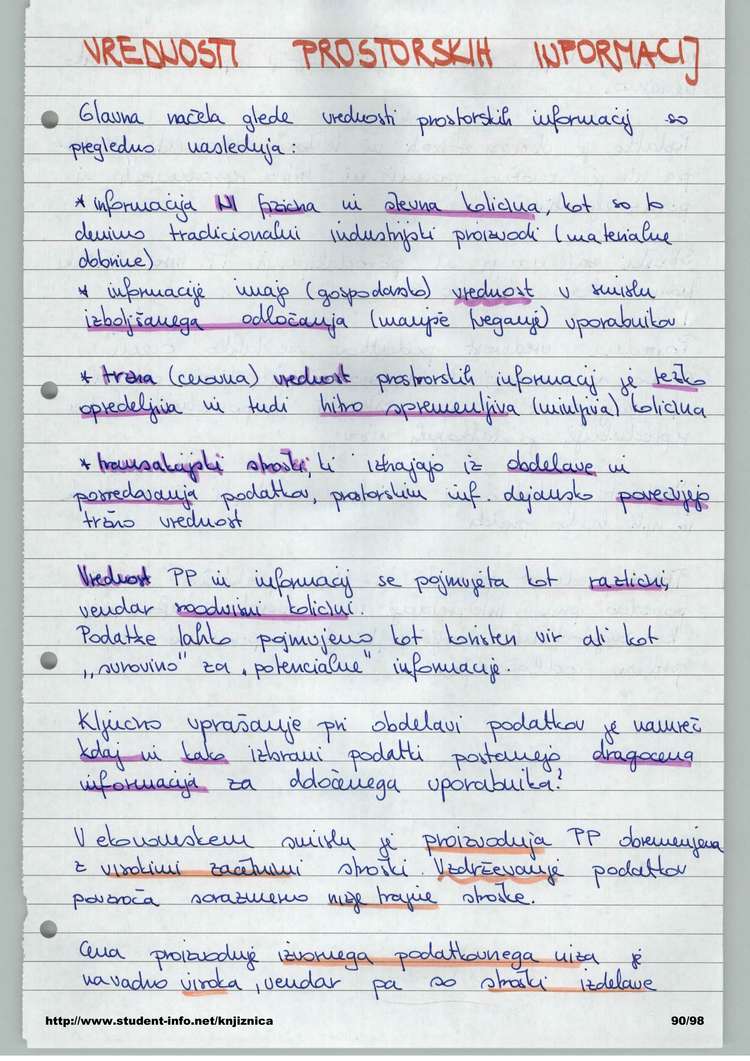 VREDNOSTI PROSTORSKIH INFORMACIJ
Glavna načela glede vrednosti prostorskih informacij so
pregledno naslednja:
* informacija NI fizična in števna količina, kot so to
denimo tradicionalni industrijski proizvodi (materialne
dobrine)
* informacije imajo (gospodarsko) vrednost v smislu
izboljšanega odločanja (manjše tveganje) uporabnikov
* tržna (cenovna) vrednost prostrorskih informacij je težko
opredeljiva in tudi hitro spremenljiva (minljiva) količina
* transakcijski stroški, ki izhajajo iz obdelave in
posredovanja podatkov, prostorskim inf. dejansko povečujejo
tržno vrednost
Vrednost PP in informacij se pojmujeta kot različni,
vendar soodvisni količini.
Podatke lahko pojmujemo kot koristen vir ali kot
„surovino" za „potencialne" informacije.
Ključno vprašanje pri obdelavi podatkov je namreč
kdaj in kako izbrani podatki postanejo dragocena
informacija za določenega uporabnika?
V ekonomskem smislu je proizvodnja PP obremenjena
z visokimi začetnimi stroški. Vzdrževanje podatkov
povzroča sorazmerno nižje trajne stroške.
Cena proizvodnje izvornega podatkovnega niza je
navadno visoka, vendar pa so stroški izdelave
http://www.student-info.net/knjiznica
90/98